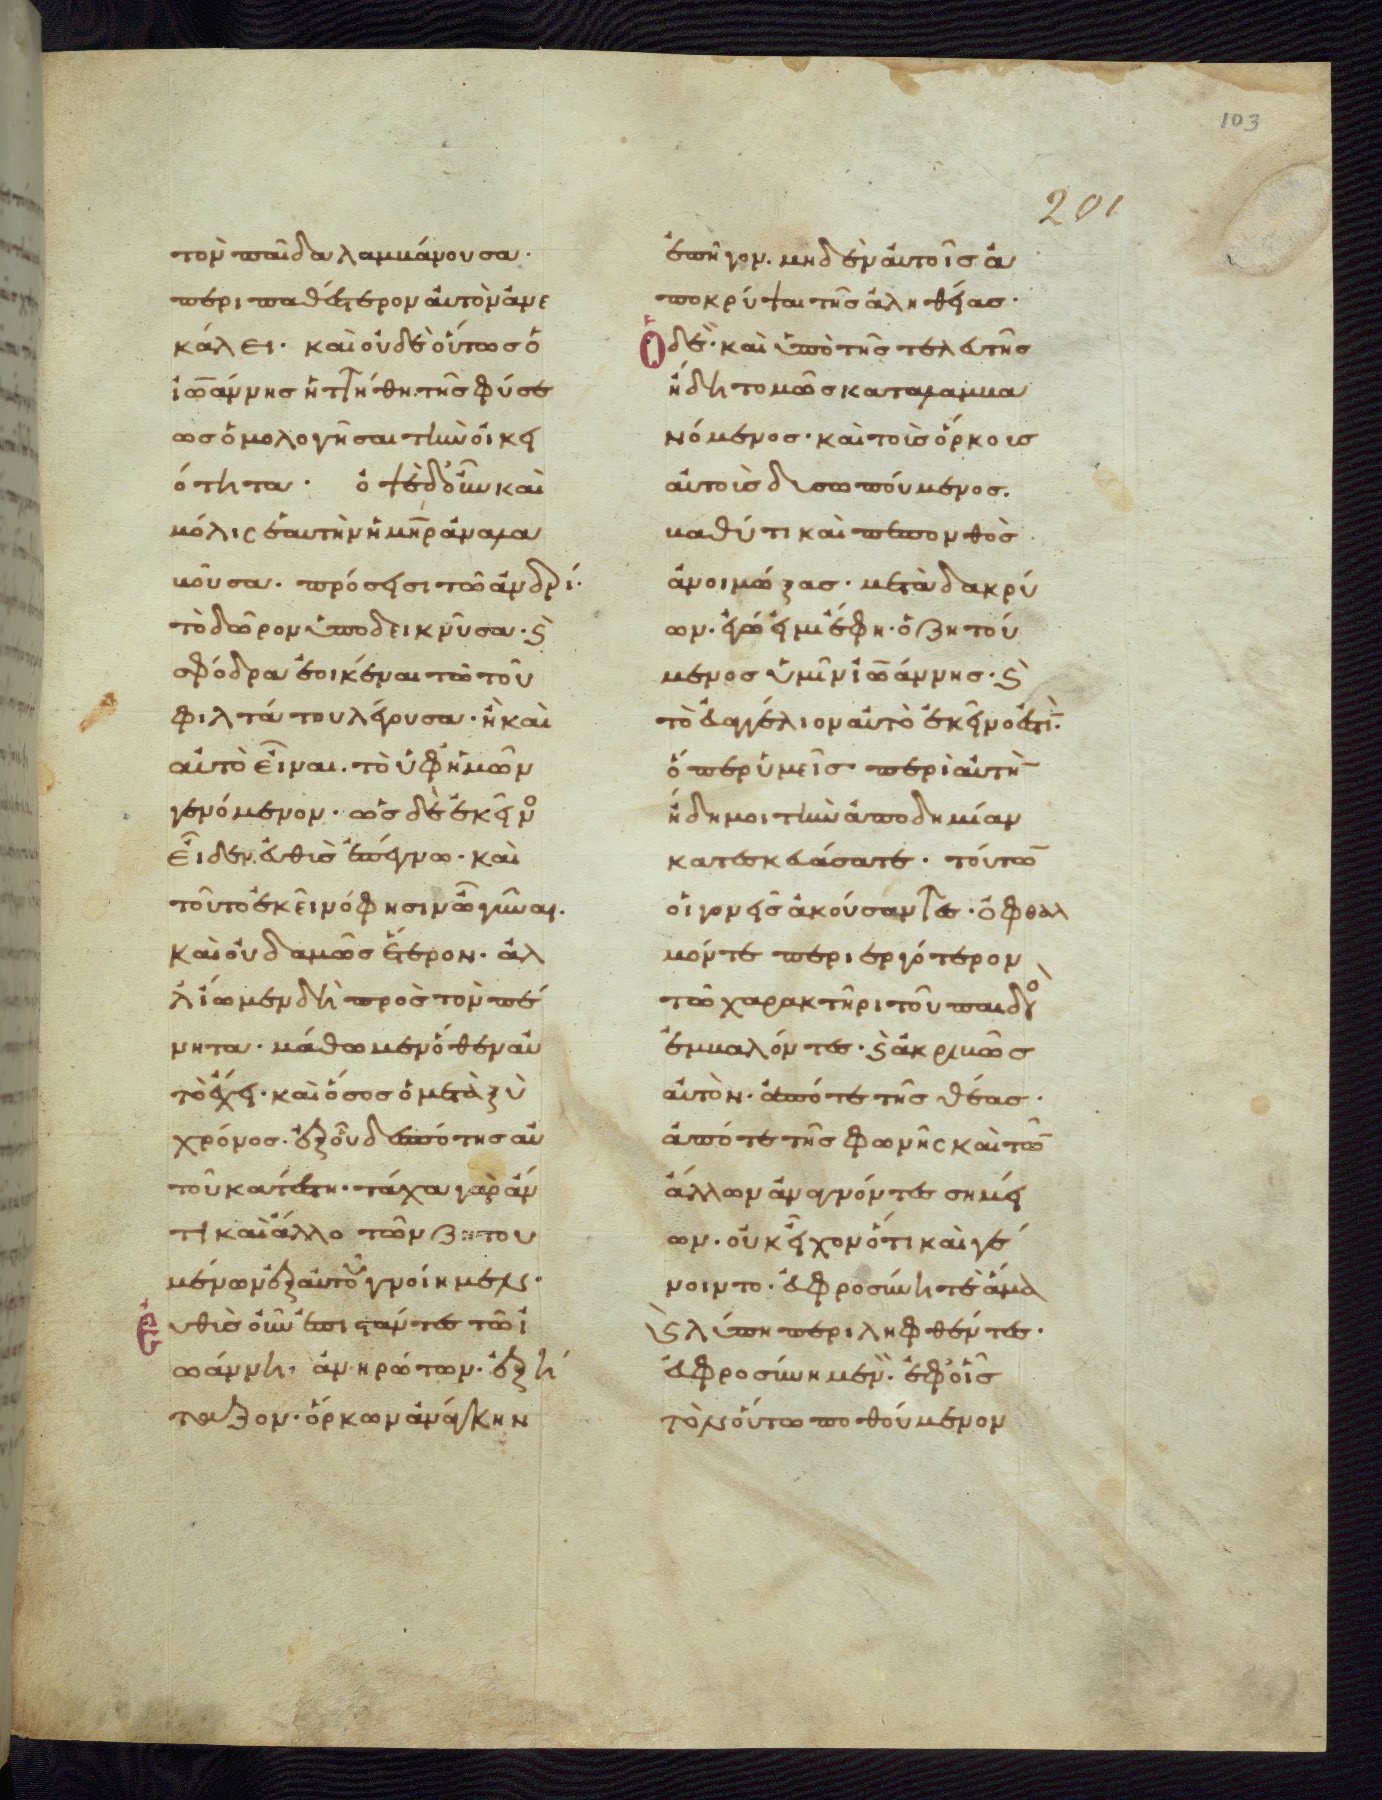 103
201
τὸν παῖδα λαμβάνουσα·
περιπαθέστερον αὐτὸν ἀνε
κάλει· καὶ οὐδὲ οὕτως ὁ
ἰωάννης ἡττήθη τῆς φύσε
ως ὁμολογῆσαι τὴν οἰκει
ότητα· ὀψὲ δ' οὖν καὶ
μόλις ἑαυτὴν ἡ μηρ ἀναλα
βοῦσα· πρόσεισι τῶ ἀνδρί·
τὸ δῶρον ὑποδεικνῦσα· καὶ
σφόδρα ἐοικέναι τῶ τοῦ
φιλτάτου λέγουσα· ἢ καὶ
αὐτὸ εἶναι· τὸ ὑφ' ἡμῶν
γενόμενον· ὡς δὲ ἐκεῖνο
εἶδεν εὐθὺς ἐπέγνω· καὶ
τοῦτο ἐκεῖνό φησιν ὦ γύναι·
καὶ οὐδαμῶς ἕτερον· ἀλ
λ' ἴωμεν δὴ πρὸς τὸν πέ
νητα· μάθωμεν ὅθεν αὐ
τὸ ἔχει· καὶ ὅσος ὁ μεταξὺ
χρόνος· ἐξ οὗ δεσπότης αὐ
τοῦ κατέστη· τάχα γὰρ ἄν
τι καὶ ἄλλο τῶν ζητου
μένων ἐξ αὐτοῦ γνοίημεν·
Εὐθὺς οὖν ἐπιστάντες τῶ ἰ
ωάννη· ἀνηρώτων· ἐξή
ταζον· ὅρκων ἀνάγκην
ἐπῆγον· μηδὲν αὐτοῖς ἀ
ποκρύψαι τῆς ἀληθείας·
Ὁ δὲ· καὶ ὑπὸ τῆς τελευτῆς
ἤδη τομῶς καταλαμβα
νόμενος· καὶ τοῖς ὅρκοις
αὐτοῖς δυσωπούμενος·
βαθύ τι καὶ πεπονθὸς
ἀνοιμώξας· μετὰ δακρύ
ων· ἐγώ εἰμι ἔφη· ὁ ζητού
μενος ὑμῖν ἰωάννης· καὶ
τὸ εὐαγγέλιον αὐτὸ ἐκεῖνο ἐστὶν·
ὅπερ ὑμεῖς· περὶ αὐτὴν
ἤδη μοι τὴν ἀποδημίαν
κατεσκευάσατε· τούτων
οἱ γονεῖς ἀκούσαντες· ὀφθαλ
μόν τε περιεργότερον
τῶ χαρακτῆρι τοῦ παιδὸς
ἐμβαλόντες· καὶ ἀκριβῶς
αὐτὸν· ἀπό τε τῆς θέας·
ἀπό τε τῆς φωνῆς καὶ τῶν
ἄλλων ἀναγνόντες σημεί
ων· οὐκ εἶχον ὅτι καὶ γέ
νοιντο· εὐφροσύνη τὲ ἅμα
καὶ λύπη περιληφθέντες·
εὐφροσύνη μὲν· ἐφ' οἷς
τὸν οὕτω ποθούμενον